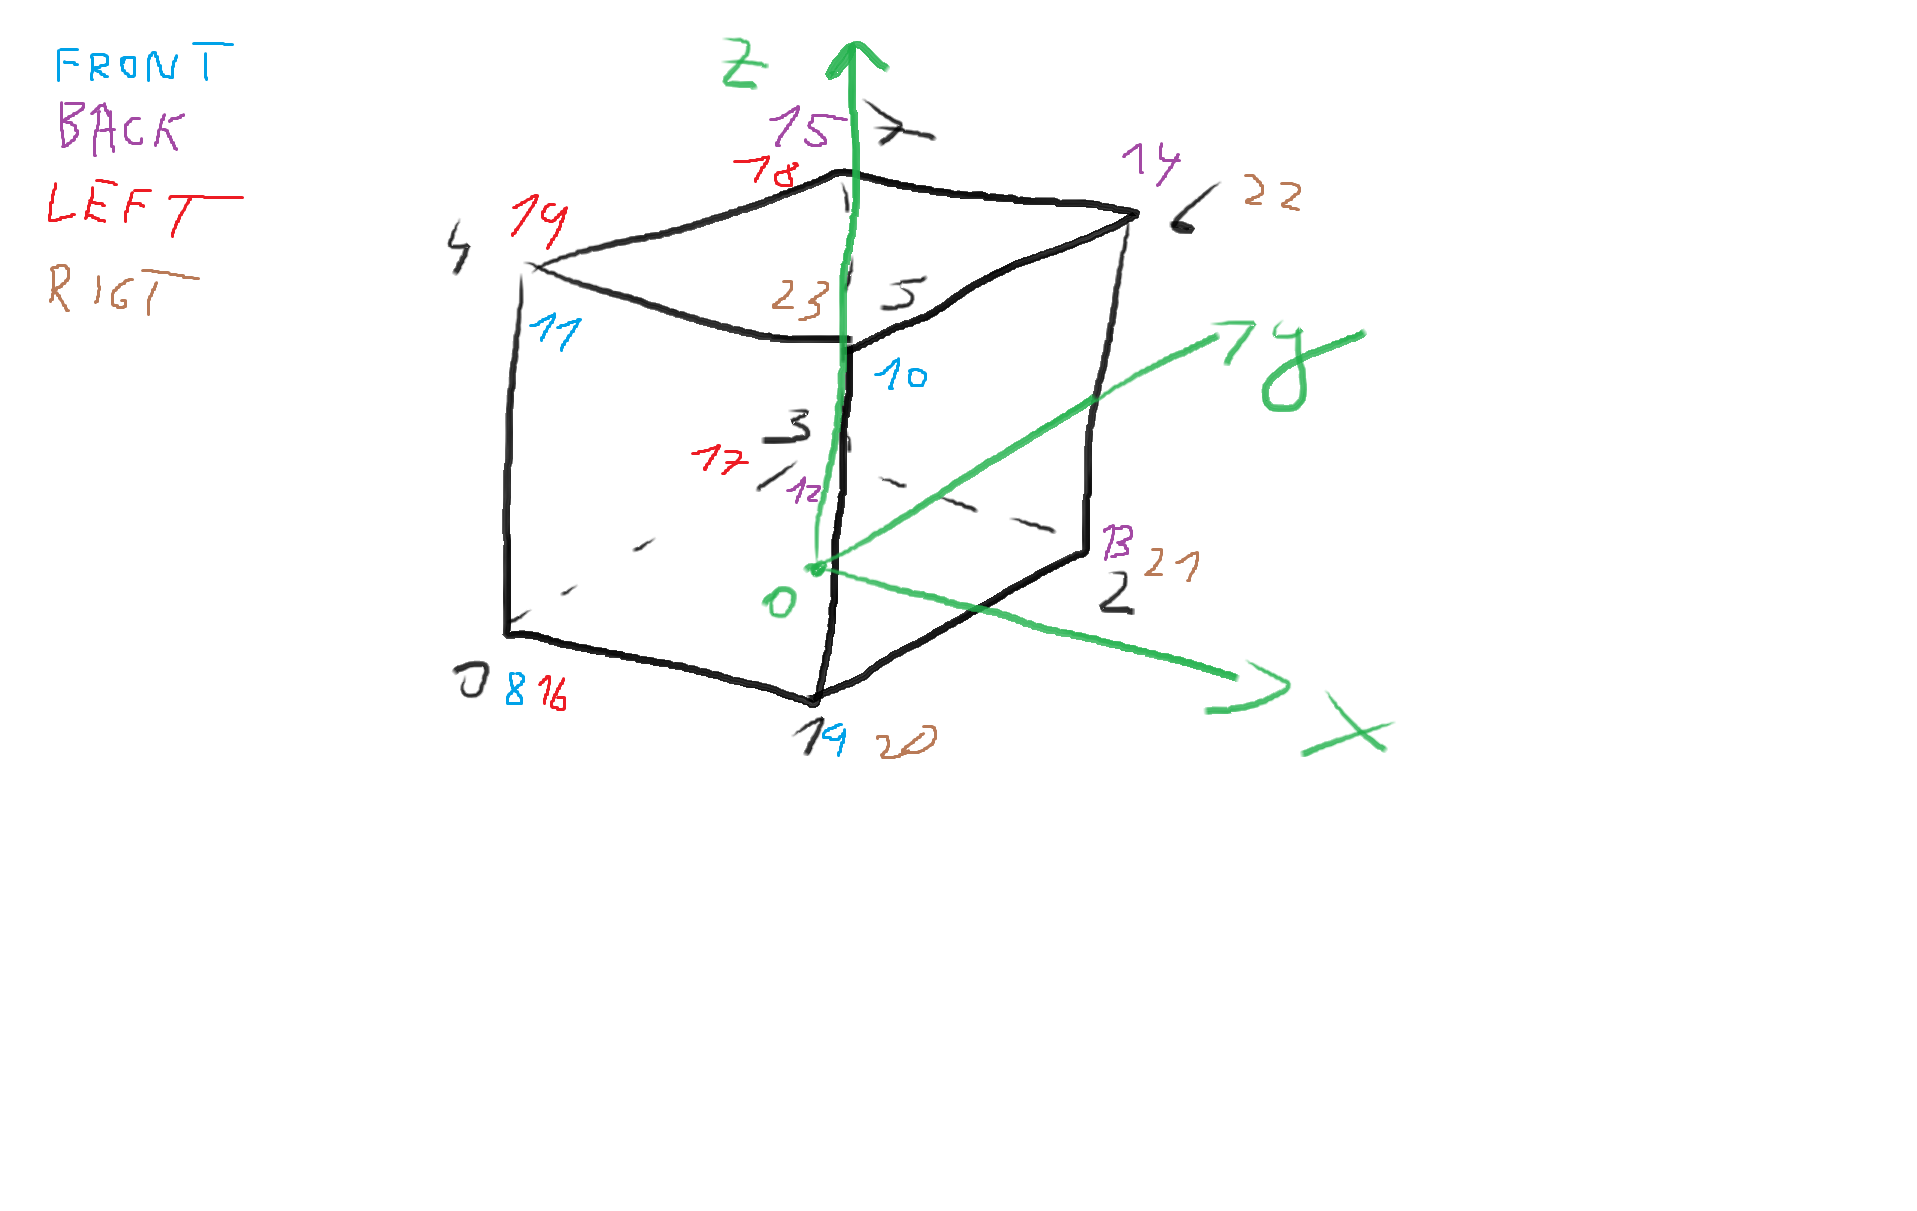 FRONT
BACK
LEFT
RIGT
Z
15 7
18
14
6 22
4 19
23 5
11
10
y
3
17
12
13
21
2
0
0 8 16
1 9 20
X